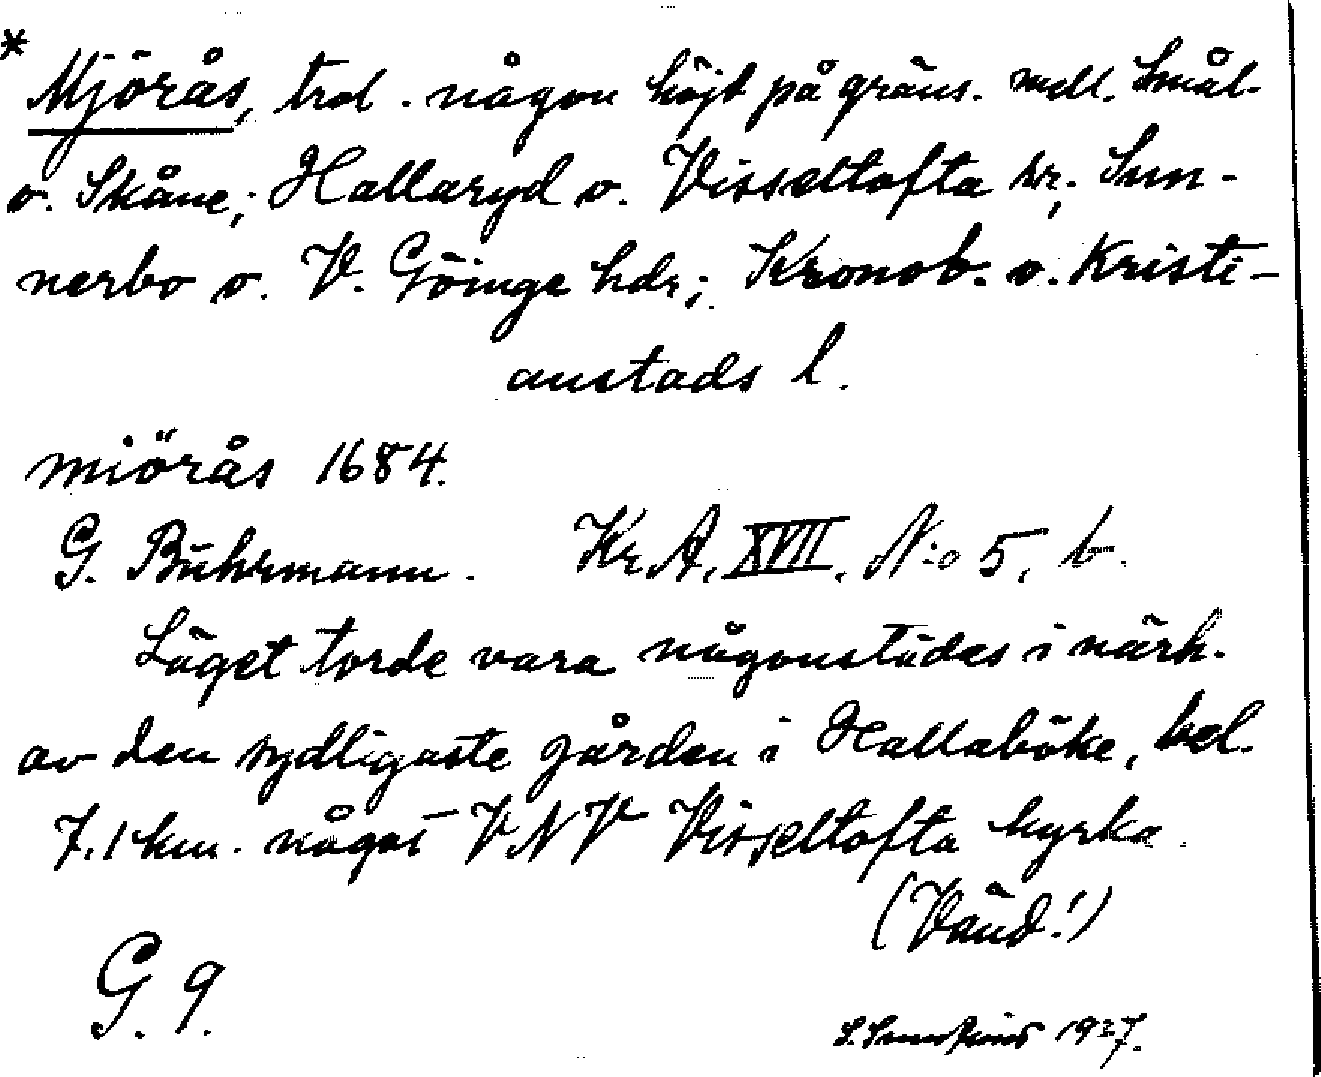 * Mjörås, trol. någon höjd på gräns. mell. Smål.
o. Skåne; Hallaryd o. Visseltofta sr; Sun-
nerbo o. V. Göinge hdr; Kronob. o. Kristi-
anstads l.
miörås 1684.
G. Buhrmann. Kr. A. XVII. N:o 5, b.
Läget torde vara någonstädes i närh.
av den sydligaste gården i Hallaböke, bel.
7.1 km. något VNV Visseltofta kyrka.
(Vänd!)
G. 9.
1927.